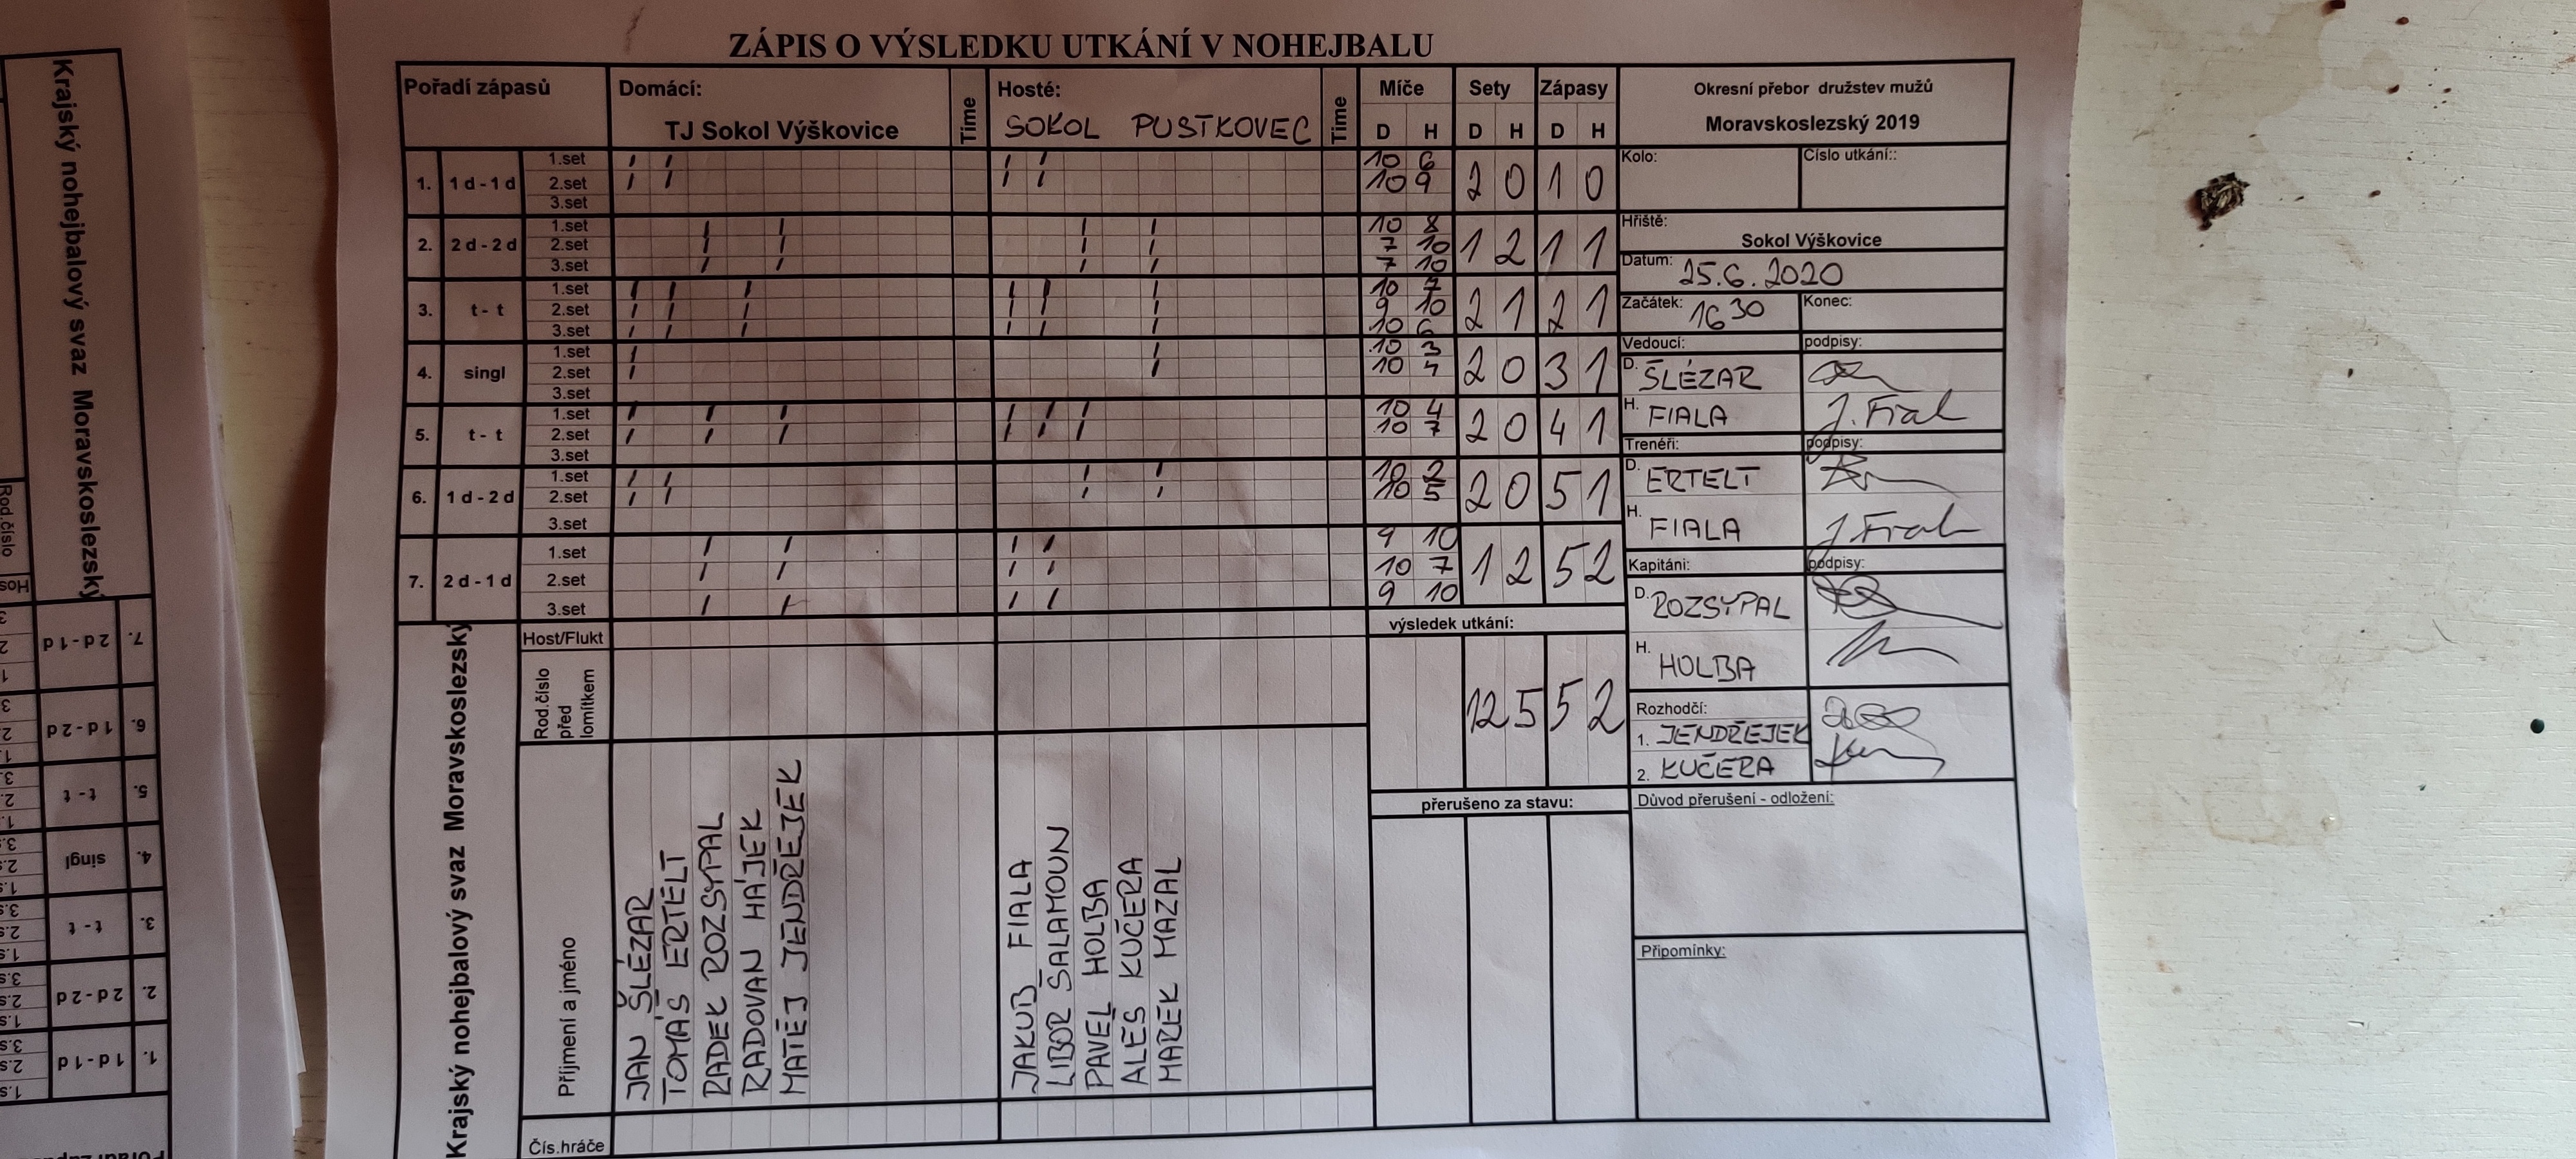 ZÁPIS O VÝSLEDKU UTKÁNÍ V NOHEJBALU
Pořadí zápasů Domácí: Time Hosté: Time Míče Sety Zápasy
TJ Sokol Výškovice SOKOL PUSTKOVEC D H D H D H
Okresní přebor družstev mužů
Moravskoslezský 2019
1. 1 d - 1 d 2 0 1 0
1.set 10 6
2.set 10 9
3.set
2. 2 d - 2 d 1 2 1 1
1.set 10 8
2.set 7 10
3.set 7 10
3. t - t 2 1 2 1
1.set 10 7
2.set 9 10
3.set 10 6
4. singl 2 0 3 1
1.set 10 3
2.set 10 4
3.set
5. t - t 2 0 4 1
1.set 10 4
2.set 10 7
3.set
6. 1 d - 2 d 2 0 5 1
1.set 10 2
2.set 10 5
3.set
7. 2 d - 1 d 1 2 5 2
1.set 9 10
2.set 10 7
3.set 9 10
Kolo: Číslo utkání::
Hřiště:
Sokol Výškovice
Datum: 25.6.2020
Začátek: 16 30 Konec:
Vedoucí: podpisy:
D. ŠLÉZAR
H. FIALA J. Fial
Trenéři: podpisy:
D. ERTELT
H. FIALA J. Fial
Kapitáni: podpisy:
D. ROZSYPAL
H. HOLBA
Rozhodčí:
1. JENDŘEJEK
2. KUČERA
výsledek utkání:
12 5 5 2
přerušeno za stavu:
Důvod přerušení - odložení:
Připomínky:
Krajský nohejbalový svaz Moravskoslezský
Host/Flukt
Rod.číslo
před
lomítkem
Příjmení a jméno
JAN ŠLÉZAR
TOMÁŠ ERTELT
RADEK ROZSYPAL
RADOVAN HÁJEK
MATĚJ JENDŘEJEK
JAKUB FIALA
LIBOR ŠALAMOUN
PAVEL HOLBA
ALEŠ KUČERA
MAREK MAZAL
Čís.hráče
Krajský nohejbalový svaz Moravskoslezský
Rod.číslo
7. 2 d - 1 d
6. 1 d - 2 d
5. t - t
4. singl
3. t - t
2. 2 d - 2 d
1. 1 d - 1 d